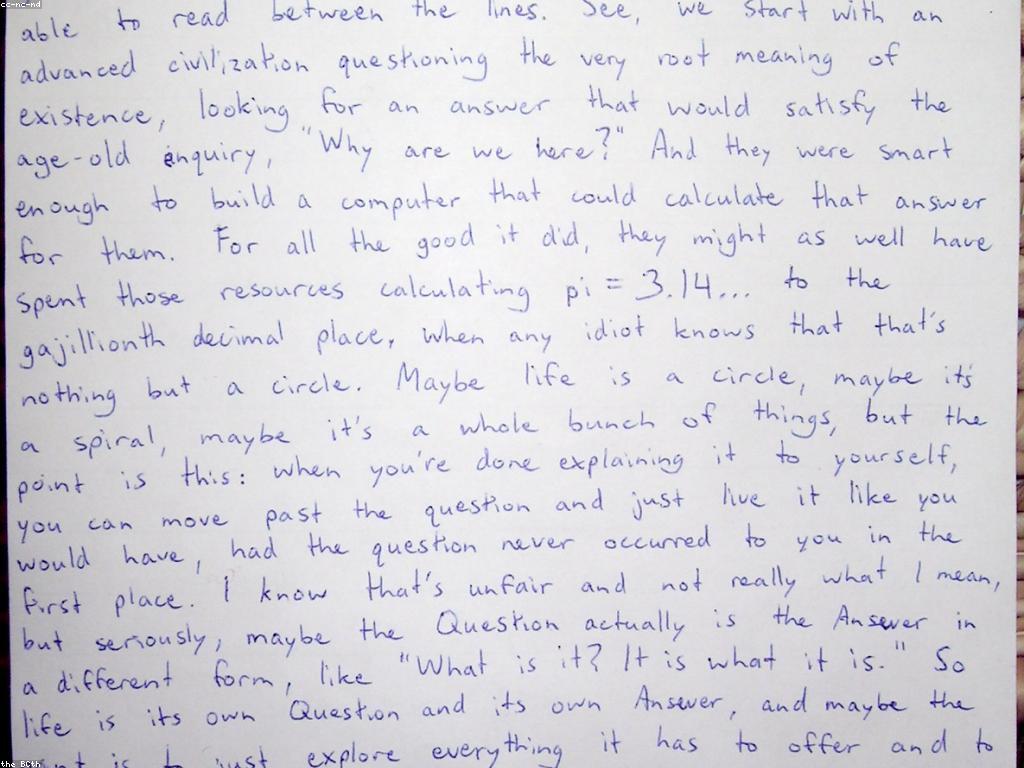 cc-nc-nd
able to read between the lines. See, we start with an
advanced civilization questioning the very root meaning of
existence, looking for an answer that would satisfy the
age-old enquiry, "Why are we here?" And they were smart
enough to build a computer that could calculate that answer
for them. For all the good it did, they might as well have
spent those resources calculating pi = 3.14... to the
gajillionth decimal place, when any idiot knows that that's
nothing but a circle. Maybe life is a circle, maybe it's
a spiral, maybe it's a whole bunch of things, but the
point is this: when you're done explaining it to yourself,
you can move past the question and just live it like you
would have, had the question never occurred to you in the
first place. I know that's unfair and not really what I mean,
but seriously, maybe the Question actually is the Answer in
a different form, like "What is it? It is what it is." So
life is its own Question and its own Answer, and maybe the
is to just explore everything it has to offer and to
the BCth